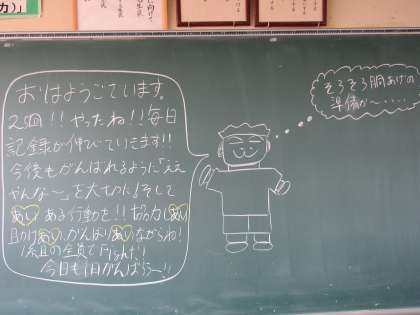 おはようございます。
2個!!やったね!!毎日
記録が伸びていきます!!
今後もがんばれるように「ええ
やんな〜」を大切に!そして
あい ある行動を!!協力しあい
助けあい、がんばりあいながらね!
1組の全員でFight!!
今日も1日がんばろう〜!!
そろそろ胴あげの
準備か〜‥‥